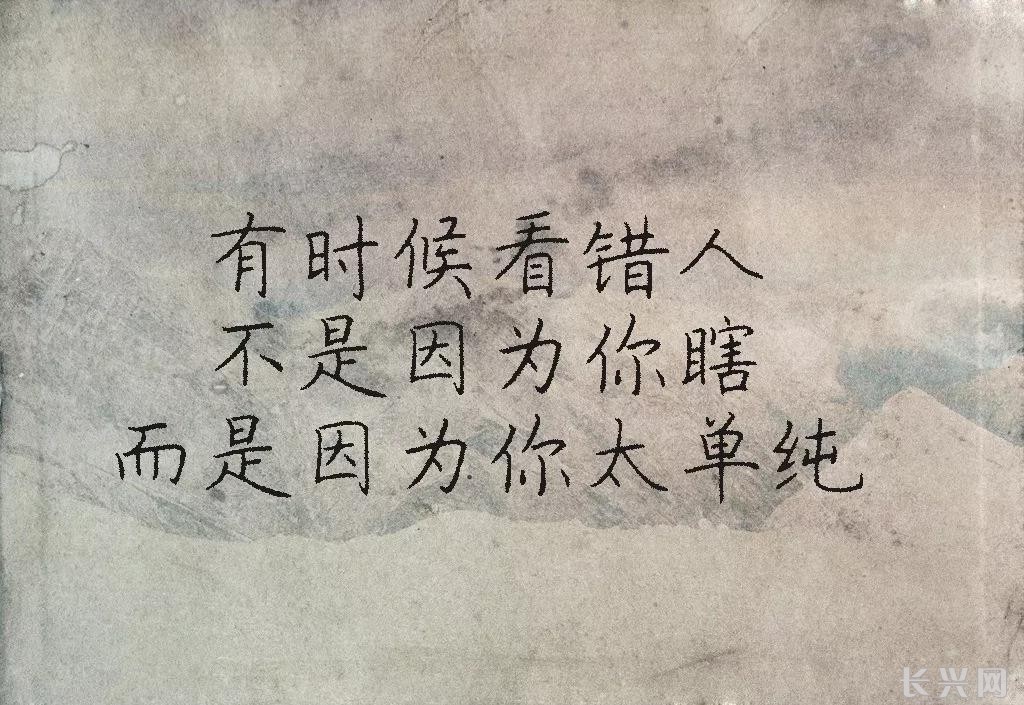 有时候看错人
不是因为你瞎
而是因为你太单纯
长兴网